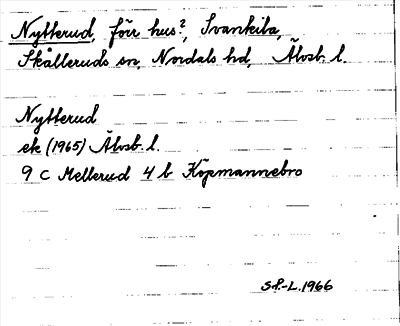 Nytterud, förr hus?, Svankila,
Skålleruds sn, Nordals hd, Älvsb. l.
Nytterud
ek (1965) Älvsb. l.
9 C Mellerud 4 b Köpmannebro
SP-L.1966